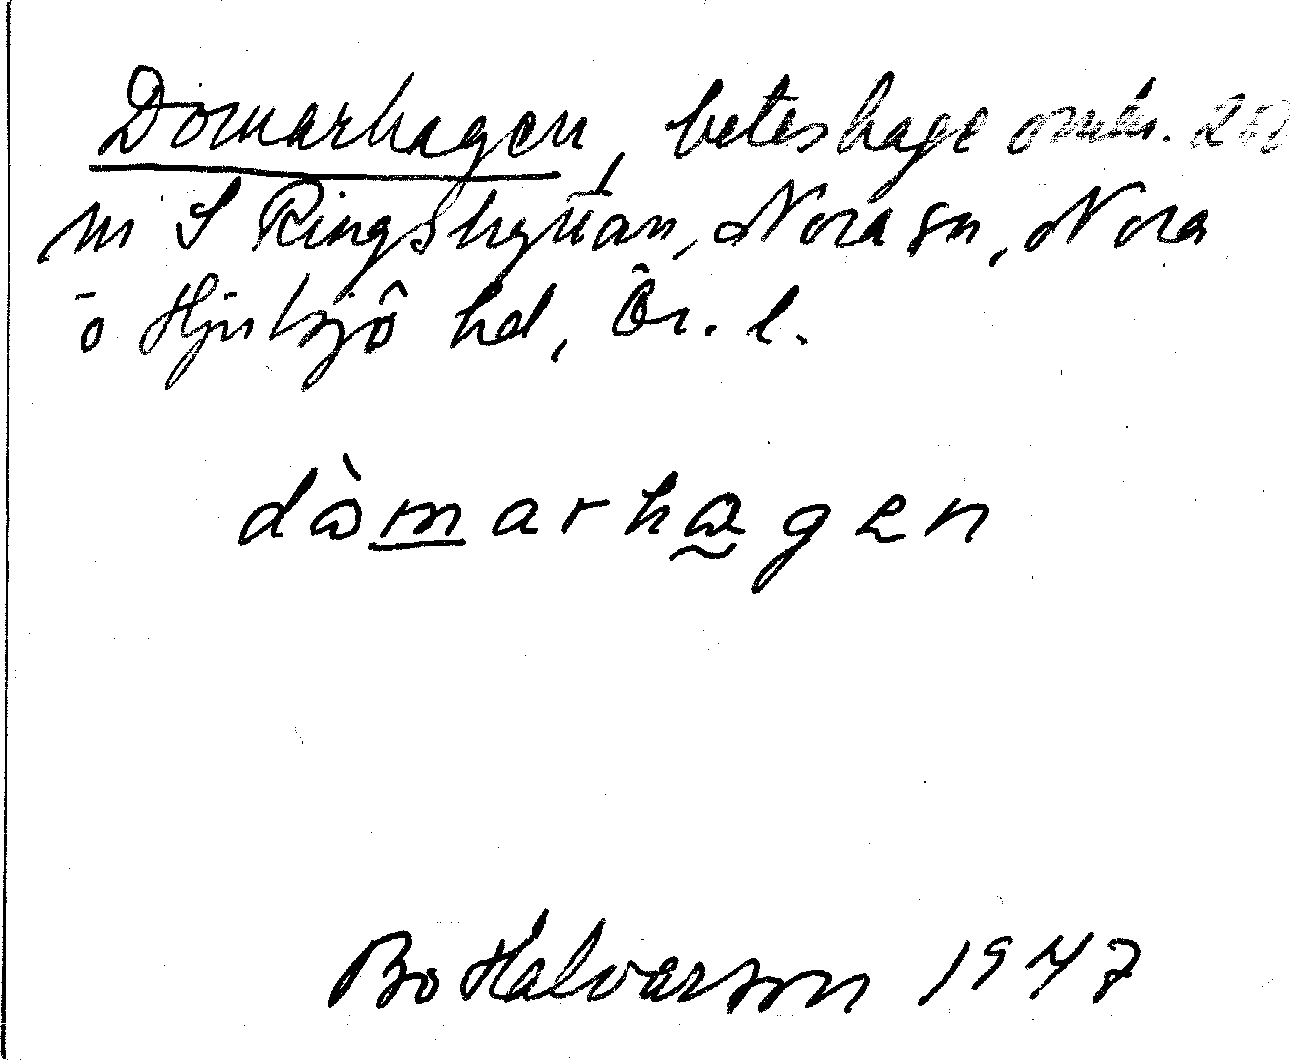 Domarhagen, beteshage omkr. 250
m S Ringshyttan, Nora sn, Nora
o Hjulsjö hd, Ör. l.
dòmarhagen
Bo Halvarson 1947